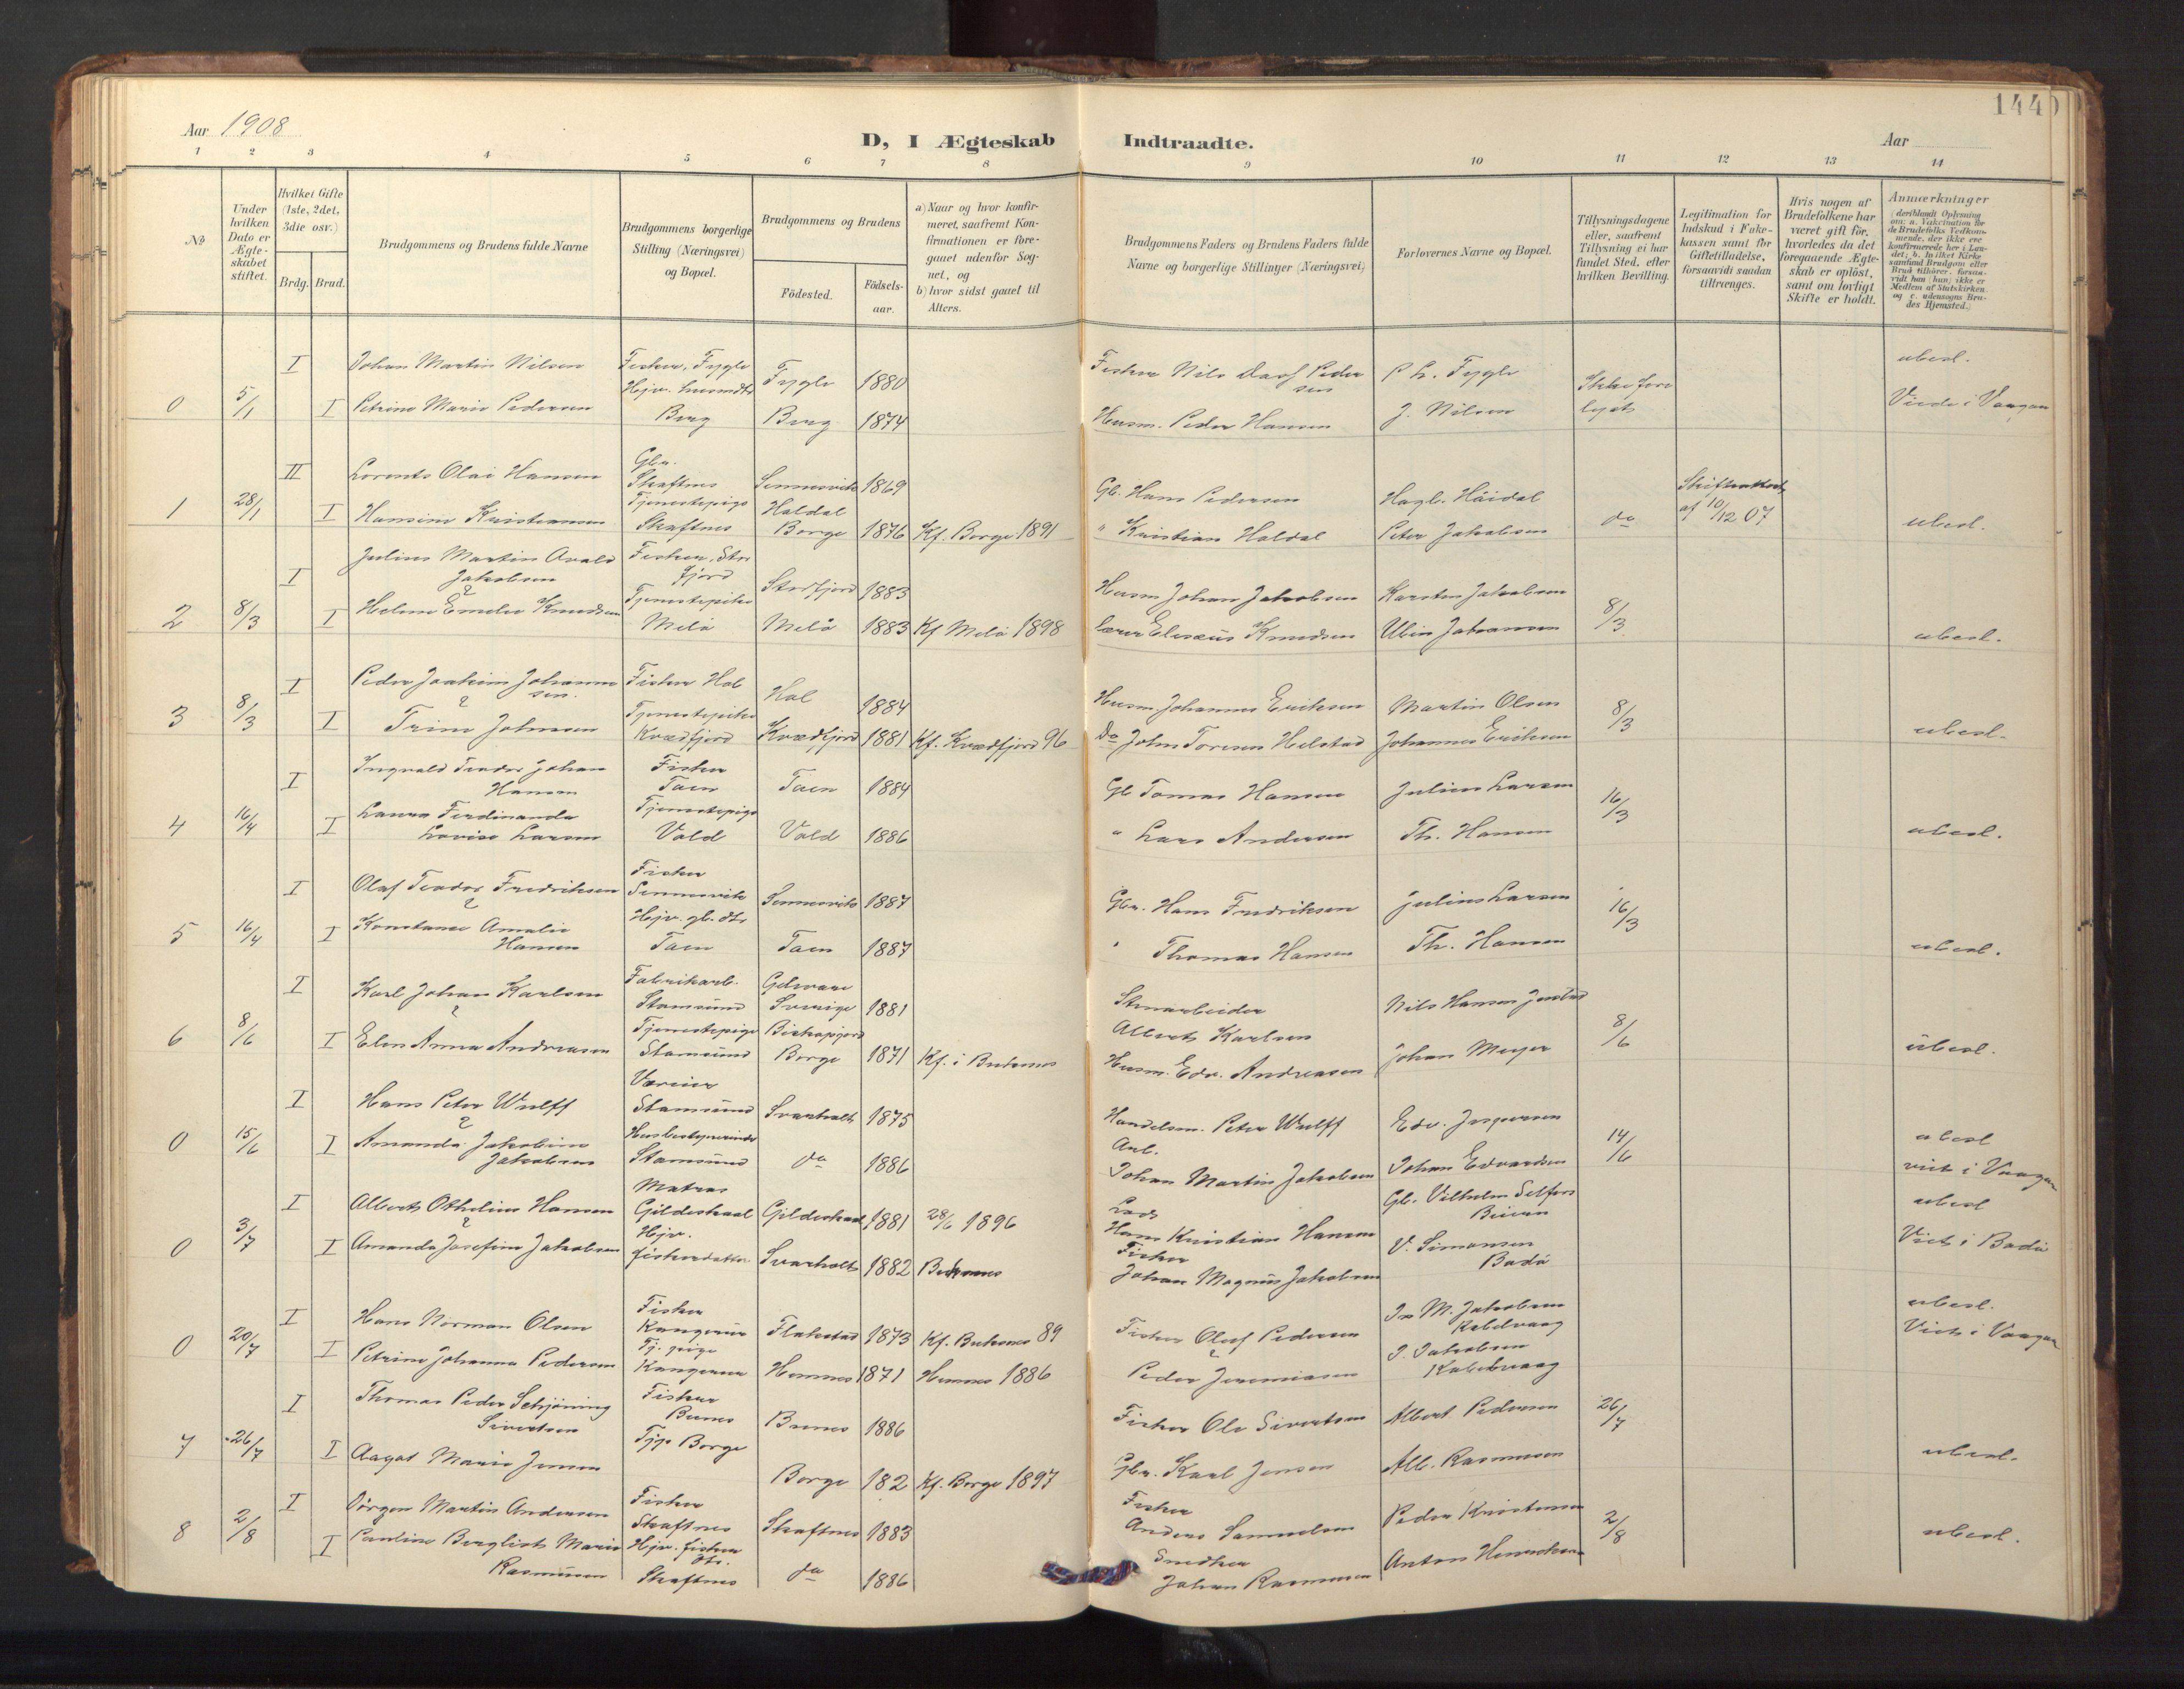 144
Aar 1908
D, I Ægteskab Indtraadte.
Aar
1 2 3 4 5 6 7 8 9 10 11 12 13 14
No
Under hvilken Dato er Ægteskabet stiftet.
Hvilket Gifte (1ste, 2det, 3die osv.)
Brdg. Brud.
Brudgommens og Brudens fulde Navne
Brudgommens borgerlige Stilling (Næringsvei) og Bopæl.
Brudgommens og Brudens
Födested.
Födsels-aar.
a) Naar og hvor konfir-
meret, saafremt Kon-
firmationen er fore-
gaaet udenfor Sog-
net, og
b) hvor sidst gaaet til
Alters.
Brudgommens Faders og Brudens Faders fulde
Navne og borgerlige Stillinger (Næringsvei)
Forlovernes Navne og Bopæl.
Tillysningsdagene
eller, saafremt
Tillysning ei har
fundet Sted, efter
hvilken Bevilling.
Legitimation for
Indskud i Enke-
kassen samt for
Giftetilladelse,
forsaavidt saadan
tiltrænges.
Hvis nogen af
Brudefolkene har
været gift för,
hvorledes da det
foregaaende Ægte-
skab er oplöst,
samt om lovligt
Skifte er holdt.
Anmærkninger
(deriblandt Oplysning
om: a. Vakcination for
de Brudefolks Vedkom-
mende, der ikke ere
konfirmerede her i Lan-
det; b. hvilket Kirke-
samfund Brudgom eller
Brud tilhörer, forsaa-
vidt han (hun) ikke er
Medlem af Statskirken
og c. udensogns Bru-
des Hjemsted.)
I Johan Martin Nilsen Fisker, Fygle Fygle 1880 Fisker Nils Olaf Pedersen P. Fygle Ikke fore ubesl.
0 5/1 I Petrine Marie Pedersen Hjv. husmdtr Berg Berg 1874 Husm. Peder Hansen J. Nilsen lagt Viede i Vaagan
II Lorents Olai Hansen Gbr. Skaftnes Sennesvik 1869 Gb. Hans Pedersen Hagb. Haldal
1 28/1 I Hansine Kristiansen Tjenestepige Skaftnes Haldal Borge 1876 Kf. Borge 1891 " Kristian Haldal Peter Jakobsen do Skifteattest af 10/12 07 ubesl.
I Julius Martin Ovald Jakobsen Fisker, Storfjord Storfjord 1883 Husm Johan Jakobsen Karsten Jakobsen
2 8/3 I Helene Emelie Knudsen Tjenestepike Melö Melö 1883 Kf Melö 1898 lærer Elisæus Knudsen Johansen 8/3 ubesl.
I Peder Joakim Johannesen Fisker Hol Hol 1884 Husm. Johannes Eriksen Martin Olsen
3 8/3 I Trine Johnsen Tjenestepike Kvædfjord Kvædfjord 1881 Kf. Kvædfjord 96 Do John Toresen Helstad Johannes Eriksen 8/3 ubesl.
I Ingvald Teodor Johan Hansen Fisker Taen Taen 1884 Gb Tomas Hansen Julius Larsen
4 16/4 I Laura Ferdinanda Lovise Larsen Tjenestepige Vold Vold 1886 " Lars Andersen Th. Hansen 16/3 ubesl.
I Olaf Teodor Fredriksen Fisker Sennesvik Sennesvik 1887 Gbr. Hans Fredriksen Julius Larsen
5 16/4 I Konstanse Amalie Hansen Hjv. gb. dtr Taen Taen 1887 " Thomas Hansen Th. Hansen 16/3 ubesl.
I Karl Johan Karlsen Fabrikarb. Stamsund Sverige 1881 Stenarbeider Albert Karlsen Nils Hansen
6 8/6 I Elen Anna Andreasen Tjenestepige Stamsund Borge 1871 Kf. i Buksnes Husm. Edv. Andreasen Johan Meyer 8/6 ubesl.
I Hans Peter Wulff Stamsund Svarholt 1875 Handelsm. Peter Wulff Edv. Jespersen
0 15/6 I Amanda Jakobine Jakobsen Husbestyrerinde Stamsund do 1886 Arb. Johan Martin Jakobsen Johan Edvardsen 14/6 ubesl viet i Vaagan
I Albert Othelius Hansen Matros Gildeskaal Gildeskaal 1881 28/6 1896 Lods Hans Kristian Hansen Gb. Vilhelm Selfors ubesl
0 3/7 I Amanda Josefine Jakobsen Hjv. fiskerdatter Svarholt 1882 Buksnes Fisker Johan Magnus Jakobsen V. Simonsen Bodö Viet i Bodö
I Hans Norman Olsen Fisker Kangerur Flakstad 1873 Kf. Buksnes 89 Fisker Olaf Pedersen M. Jakobsen Kabelvaag ubesl.
0 20/7 I Petrine Johanna Pedersen Tj. pige Kangerur Hemnes 1871 Hemnes 1886 Peder Jeremiasen J. Jakobsen Kabelvaag Viet i Vaagan
I Thomas Peder Schjöning Sivertsen Fisker Brenes Brenes 1886 Fisker Ole Sivertsen Albert Pedersen 26/7
7 26/7 I Aagot Marie Jensen Tjp. Borge Borge 182 Kf. Borge 1897 Gbr. Karl Jensen Alb. Rasmussen ubesl.
I Jörgen Martin Andersen Fisker Skaftnes Skaftnes 1883 Fisker Anders Samuelsen Peder Kristensen 2/8
8 2/8 I Pauline Bergliot Marie Rasmussen Hjv. fisker dtr. Skaftnes do 1886 Snedker Johan Rasmussen Anton Henriksen ubesl.